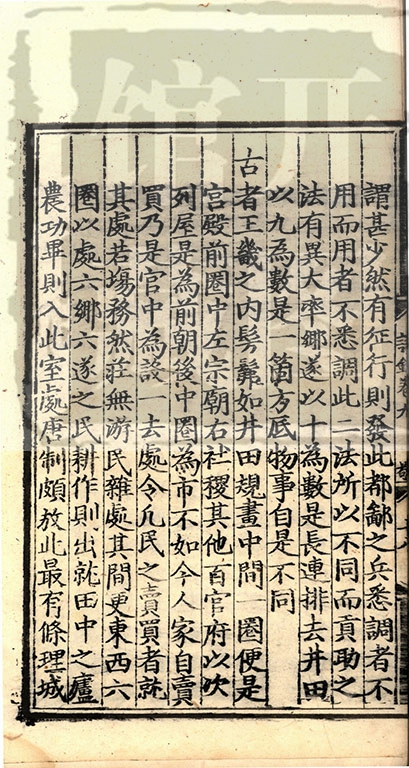 謂甚少然有征行則發此都鄙之兵悉調者不
用而用者不悉調此二法所以不同而貢助之
法有異大率鄉遂以十為數是長連排去井田
以九為數是一箇方底物事自是不同
古者王畿之内髣髴如井田規畫中間一圈便是
宮殿前圈中左宗廟右社稷其他百官府以次
列屋是為前朝後中圈為市不如今人家自賣
買乃是官中為設一去處令凡民之賣買者就
其處若塲務然莊無游民雜處其間更東西六
圈以處六鄉六遂之民耕作則出就田中之廬
農功畢則入此室處唐制頗放此最有條理城